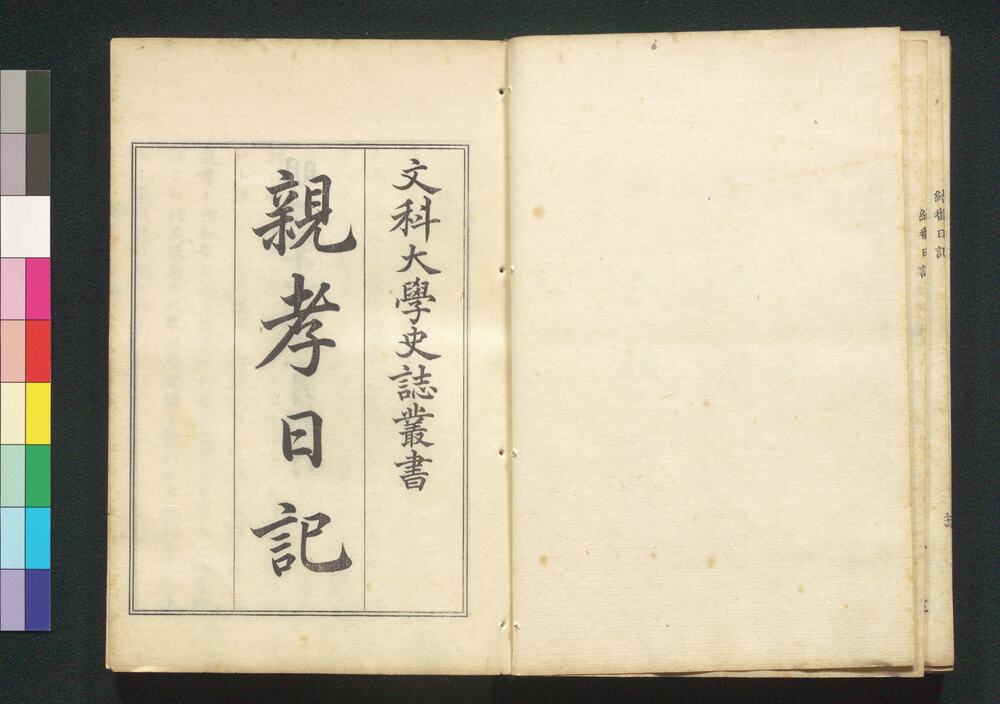 文科大學史誌叢書
親孝日記